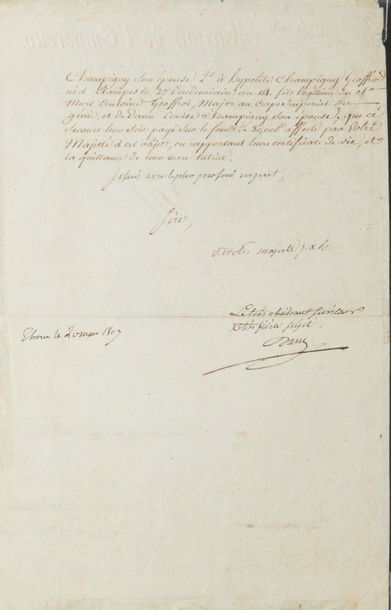 Champigny son épouse, 2.° à hypolite Champigny Geoffroi
né à le 27 Vendemiaire an 14. fils légitime du S.r
Marc Antoine Geoffroi, Major au Corps impérial du
génie, et de Dame Louise Champigny son épouse, que ce
secours leur soit payé sur le fonds de affecté par Votre
Majesté à cet objet, en rapportant leur certificat de vie, et
la quittance de leur mère tutrice.
Je suis avec le plus profond respect,
Sire,
de votre majesté
Le très obéissant serviteur
et très fidèle sujet
Daru
le 20 mars 1807